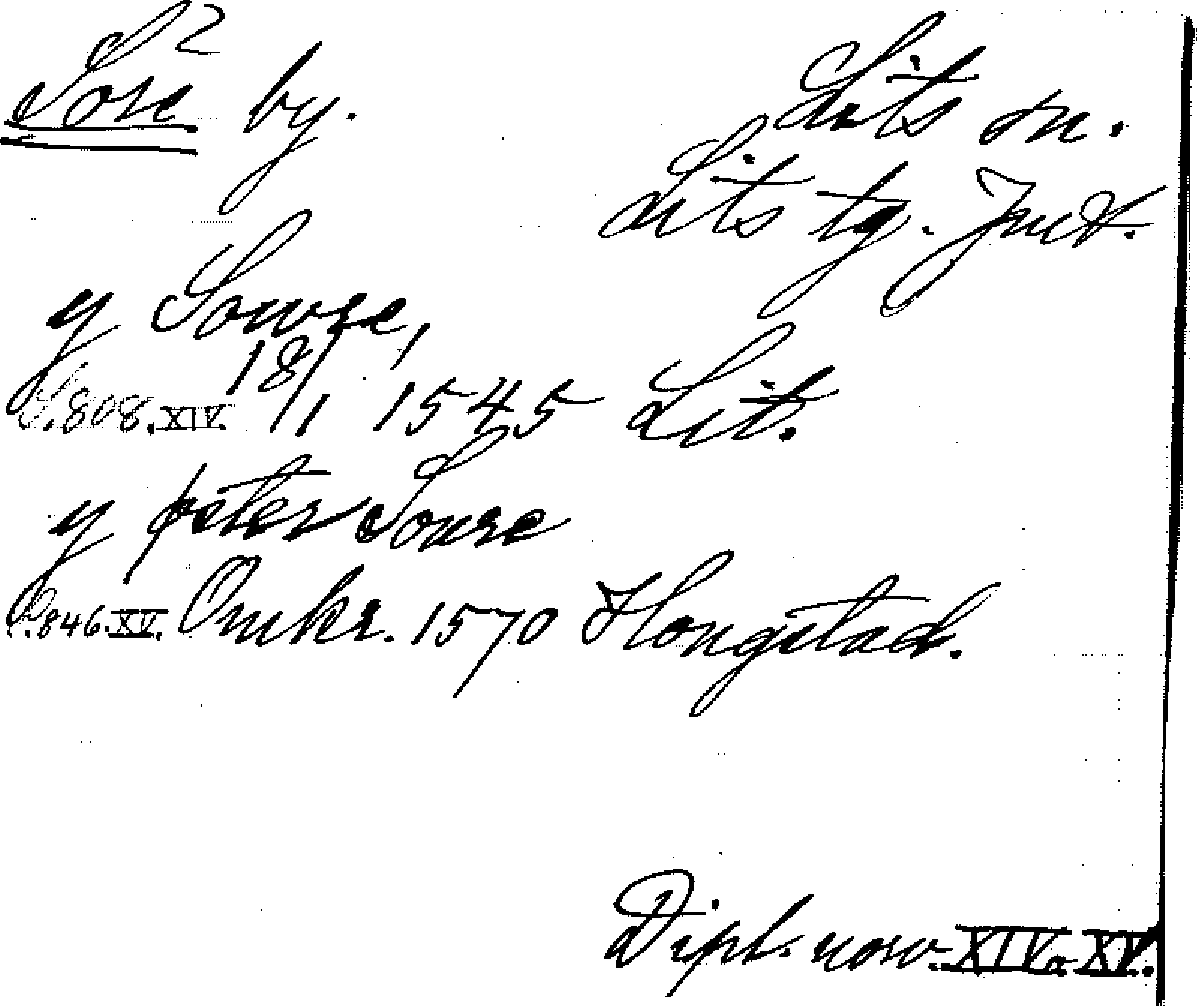 Sose² by.
Lits sn.
Lits tg. Jmtl.
y Sowse,
S.808.XIV. 18/1 1545 Lit.
y peter Souse
S.846.XV. Omkr. 1570 Hongstad.
Dipl. norv. XIV o XV.